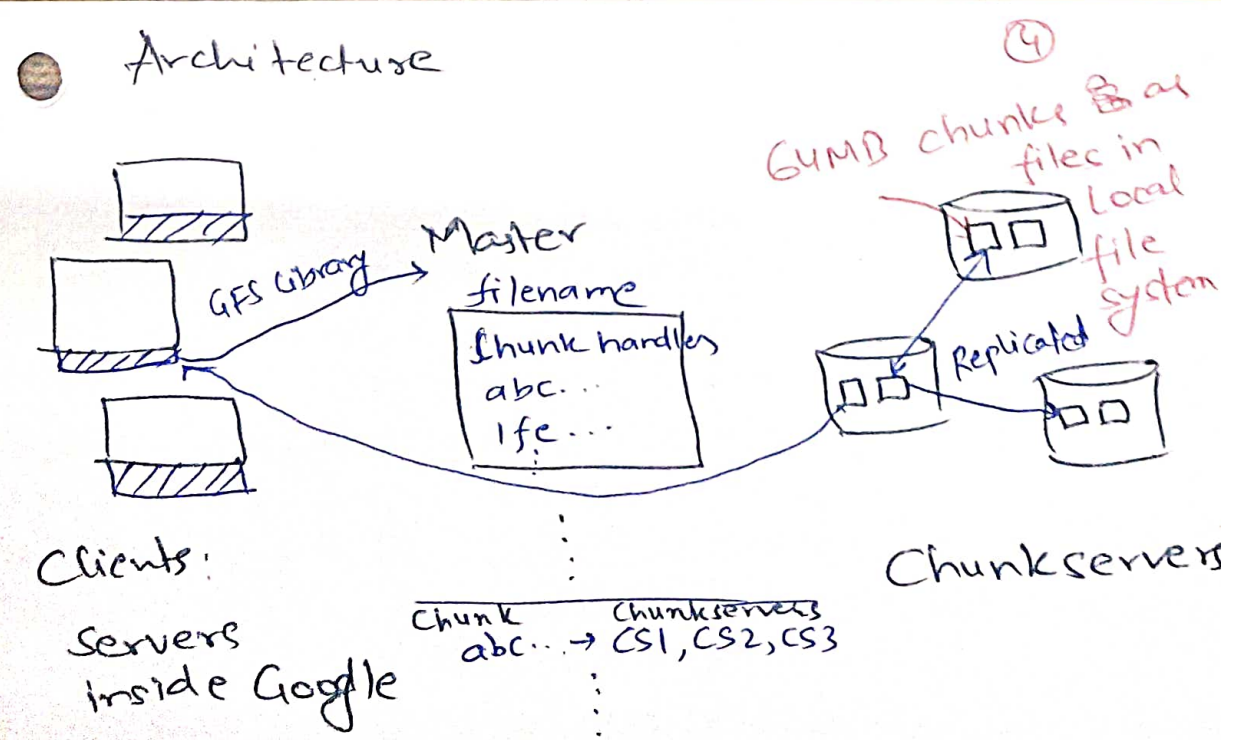 Architecture
4
64MB chunks as
files in
Local
file
system
GFS Library
Master
filename
Chunk handles
abc...
1fe...
Replicated
Clients:
servers
inside Google
Chunkservers
Chunk Chunkservers
abc... → CS1, CS2, CS3